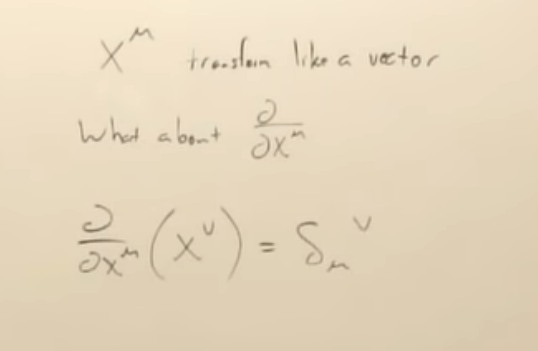 x^μ transform like a vector
What about ∂/∂x^μ
∂/∂x^μ (x^ν) = δ_μ^ν